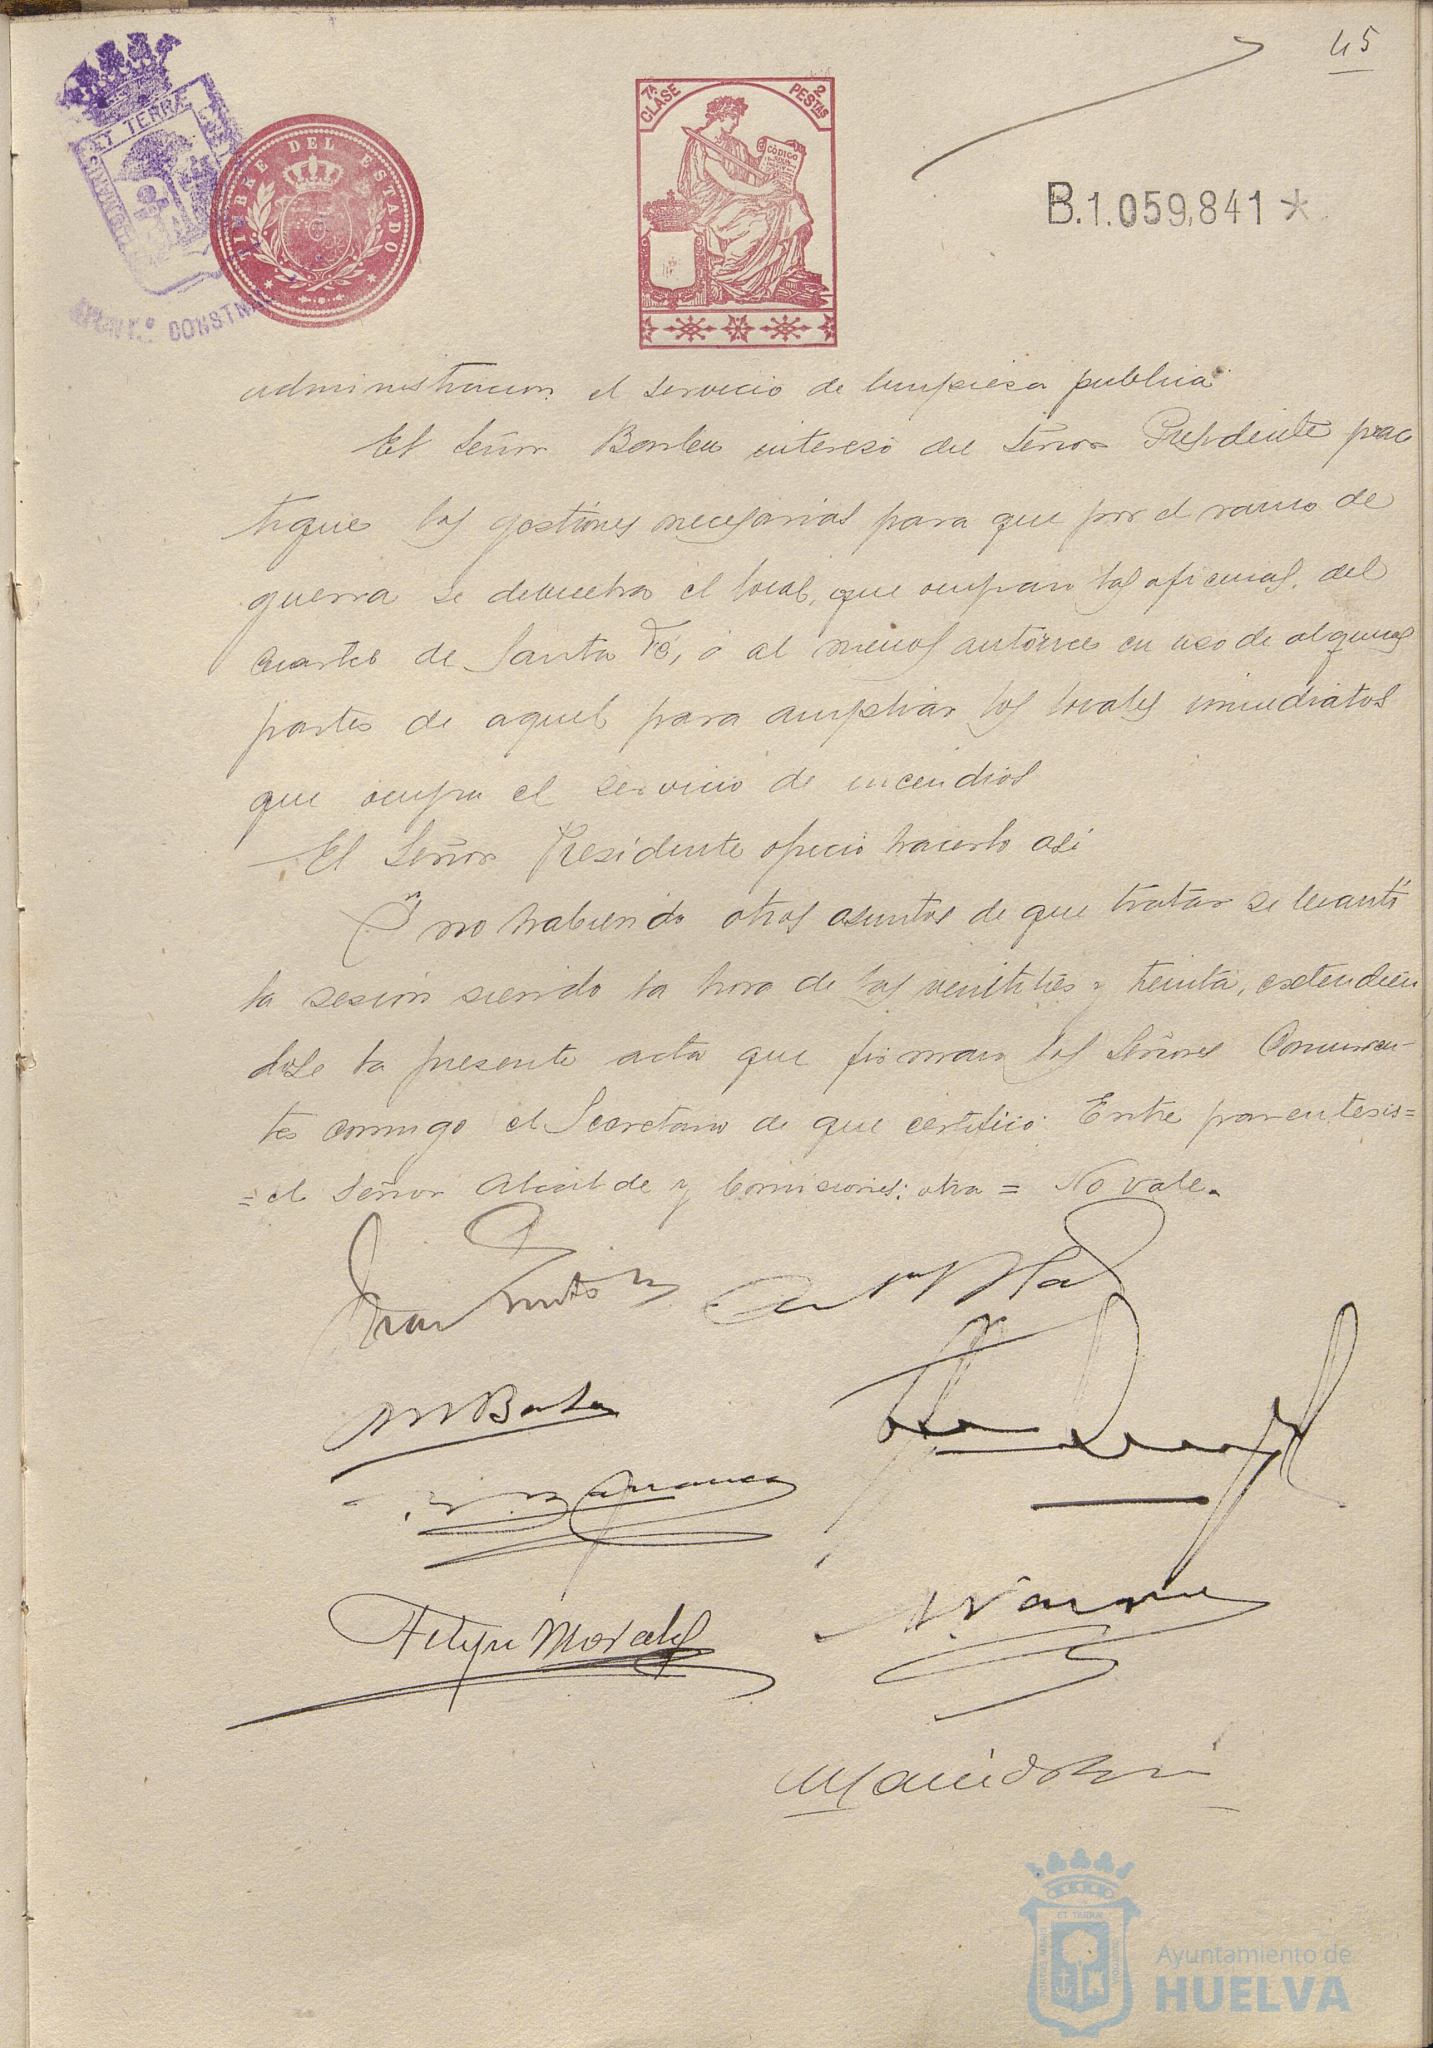 45
7ª CLASE
2 PESTAS
CÓDIGO
ET TERRÆ
TIMBRE DEL ESTADO
AYUNTº CONSTNAL
B.1.059,841*
administracion el servicio de limpieza publica
El Señor Barba interesó del Señor Presidente prac
tique las gestiones necesarias para que por el ramo de
guerra se devuelva el local, que ocupan las oficinas, del
cuartel de Santa Fé, ó al menos autorice en uso de algunas
partes de aquel para ampliar los locales inmediatos
que ocupa el servicio de incendios
El Señor Presidente ofreció hacerlo asi
Y no habiendo otros asuntos de que tratar se levantó
la sesión siendo la hora de las veintitrés y treinta, extendién
dose la presente acta que firman los Señores Concurren-
tes conmigo el Secretario de que certifico. Entre parentesis=
=el Señor Alcalde y Comisiones: otra = No vale.
M Barba
Felipe Morales
Ayuntamiento de
HUELVA